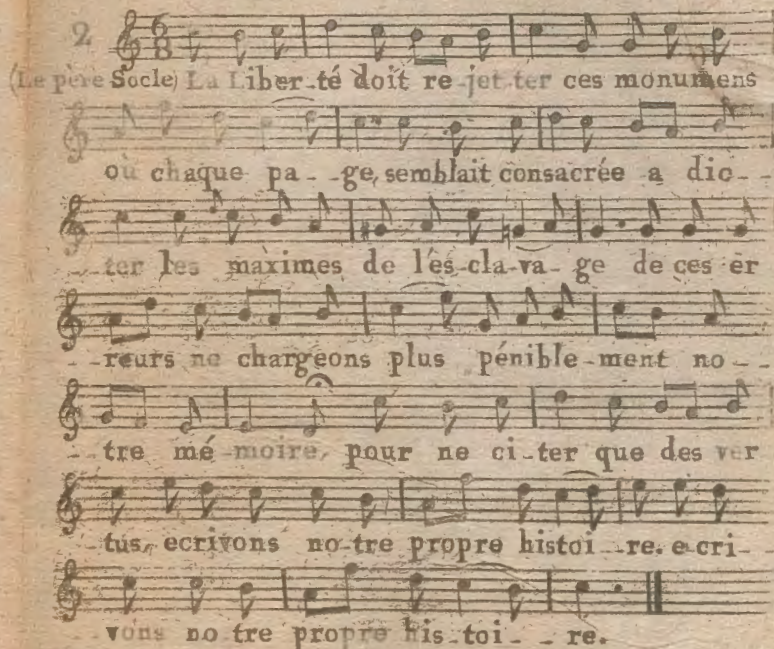 2 6 8
(Le père Socle) La Liber-té doit re-jet-ter ces monumens
où chaque pa--ge, semblait consacrée a dic--
--ter les maximes de l'es-cla-va-ge de ces er
--reurs ne chargeons plus pénible-ment no--
--tre mé-moire, pour ne ci-ter que des ver
--tus, ecrivons no-tre propre histoi--re. e-cri-
--vons no tre propre his-toi--re.